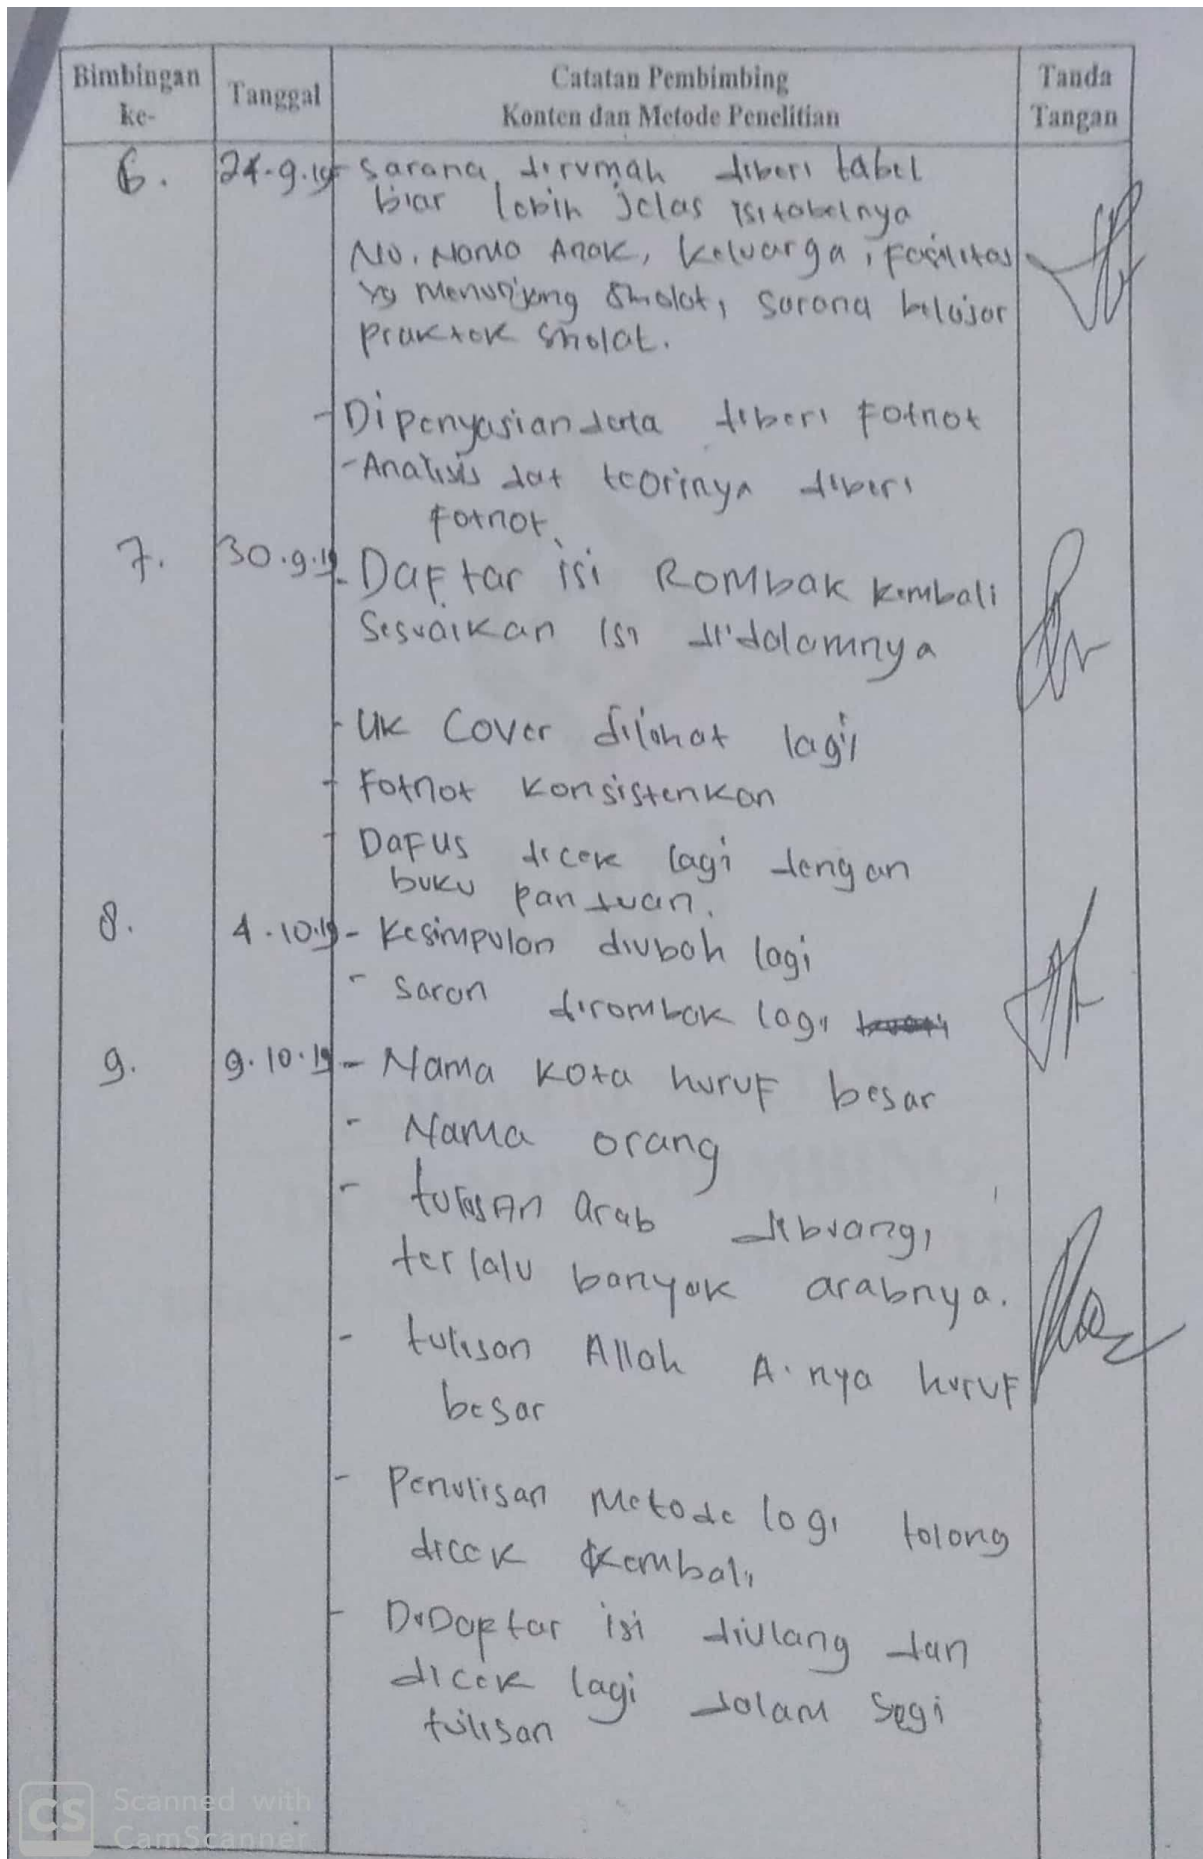 Bimbingan ke-
Tanggal
Catatan Pembimbing
Konten dan Metode Penelitian
Tanda Tangan
6. 24-9-19 - Sarana dirumah diberi tabel
biar lebih jelas isi tabelnya
No, Nama Anak, Keluarga, Fasilitas
yg Menunjang Sholat, Sarana belajar
Praktek Sholat.
- Dipenyasian data diberi Fotnot
- Analisis dat teorinya diberi
Fotnot.
7. 30.9.19 - Daftar isi Rombak kembali
Sesuaikan isi di'dalamnya
- UK Cover dilihat lagi
- Fotnot Konsistenkan
- Dafus dicek lagi dengan
buku panduan.
8. 4.10.19 - Kesimpulan diubah lagi
- Saran dirombak lagi
9. 9.10.19 - Nama Kota huruf besar
- Nama orang
- tulisan arab dibuang,
terlalu banyak arabnya.
- tulisan Allah A. nya huruf
besar
- Penulisan Metode logi tolong
dicek Kembali
- DiDaftar isi diulang dan
dicek lagi dalam segi
tulisan
CS
Scanned with
CamScanner